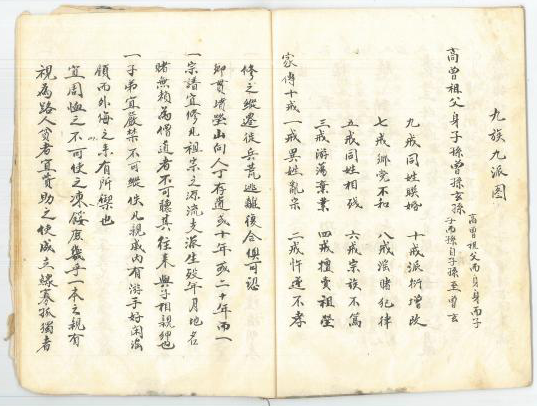 視為路人貧者宜賞助之使成立鰥寡孤獨者
宜周恤之不可使之凍餒庶幾乎一本之親有
領而外侮之來有所禦也
一子弟宜嚴禁不可縱佚凡親戚內有游手好閑淫
賭無賴為僧道者不可聽其往來與子相親狎也
一宗譜宜修凡祖宗之源流支派生歿年月地名
即貫塋山向人丁存道或十年或二十年而一
修之縱遷徙兵荒逃離復合俱可認
家傳十戒 一戒異姓亂宗 二戒忤逆不孝
三戒游蕩棄業 四戒擅賣祖塋
五戒同姓相殘 六戒宗族不篤
七戒鄉党不和 八戒淫賭犯律
九戒同姓聯婚 十戒派衍增改
高曾祖父身子孫曾孫玄孫
高曾祖父而身身而子
子而孫自子孫至曾玄
九族九派圖